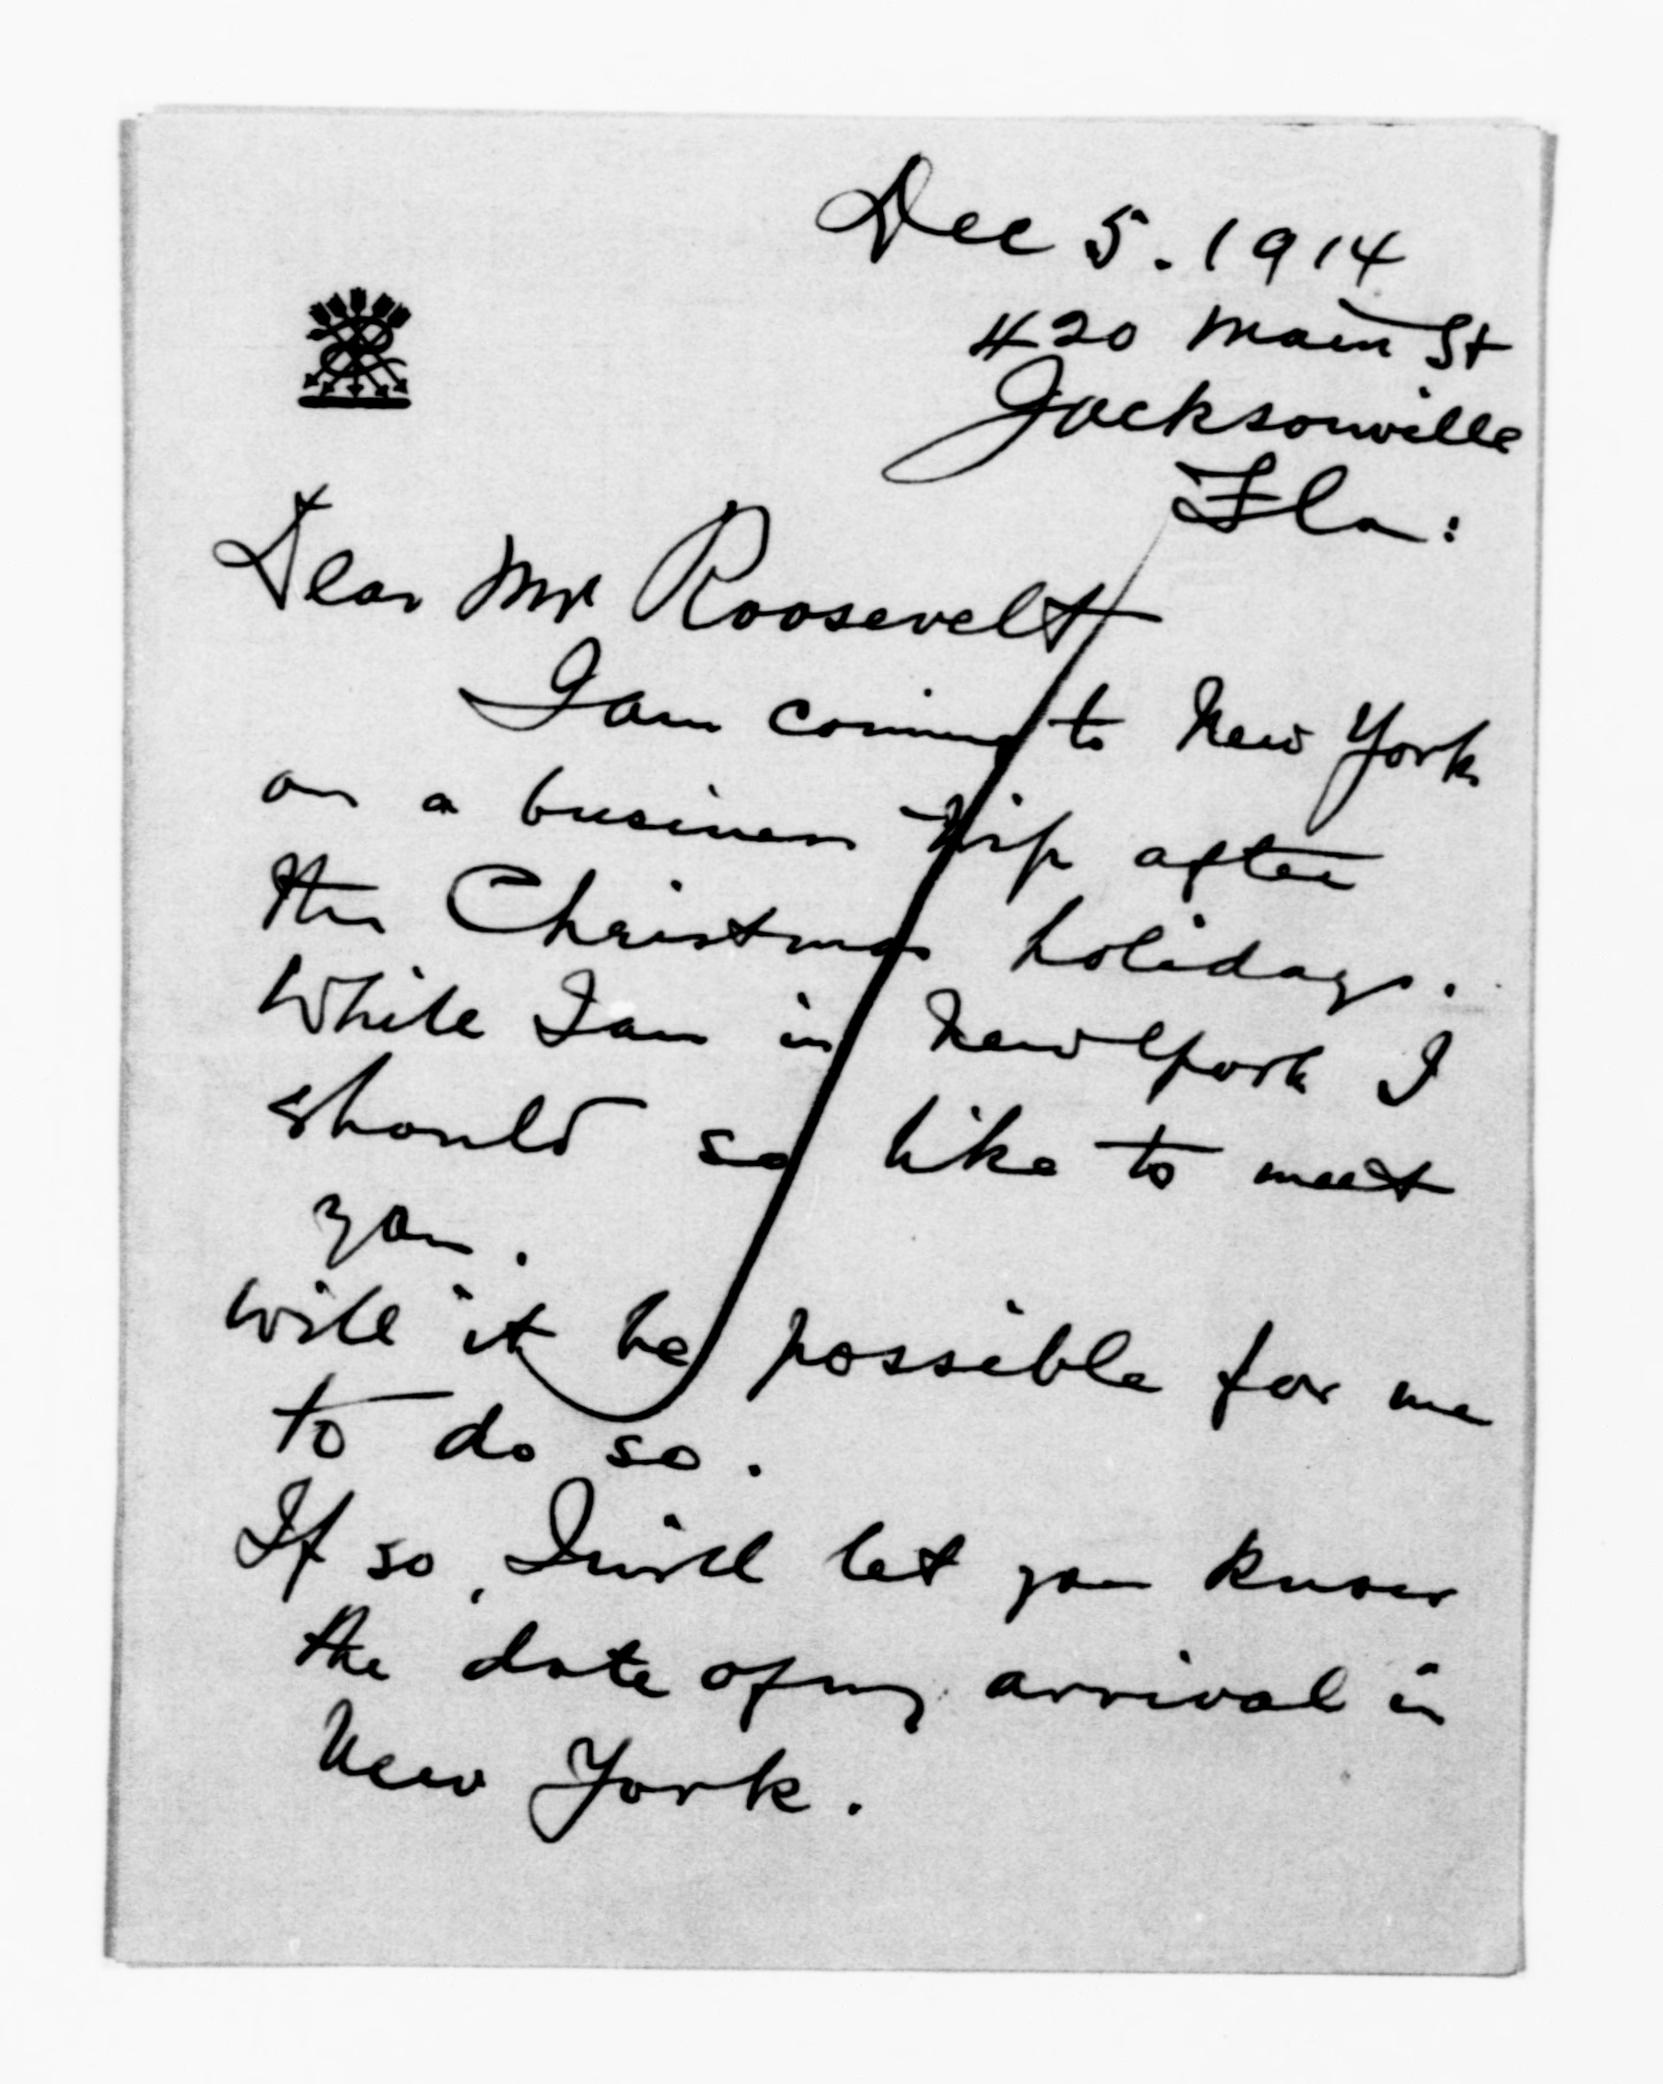 Dec 5. 1914
420 Main St
Jacksonville
Fla:
Dear Mr Roosevelt
I am coming to New York
on a business trip after
the Christmas holidays.
While I am in New York I
should so like to meet
you.
Will it be possible for me
to do so.
If so, I will let you know
the date of my arrival in
New York.